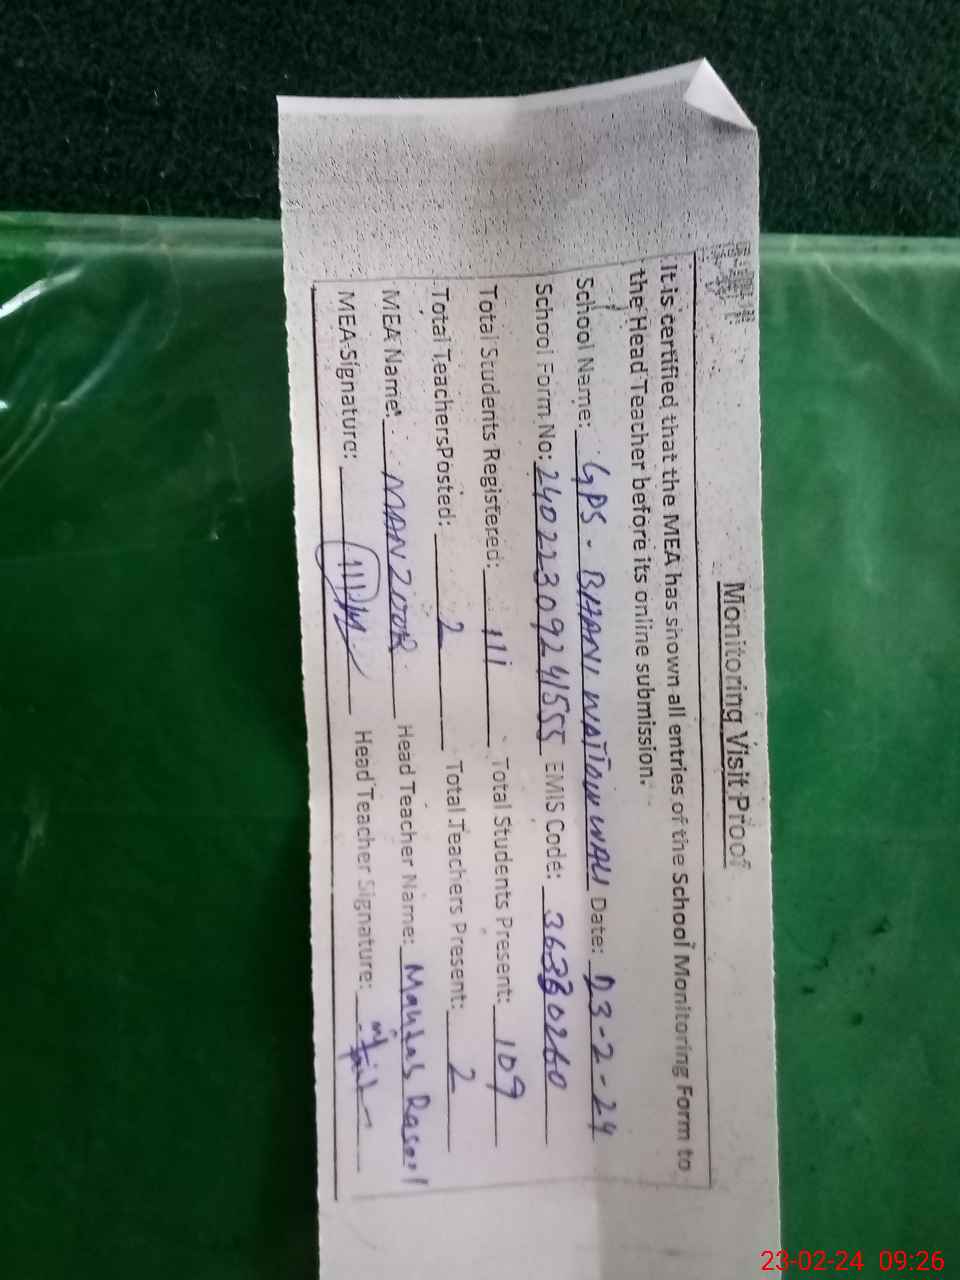 Monitoring Visit Proof
It is certified that the MEA has shown all entries of the School Monitoring Form to
the Head Teacher before its online submission.
School Name: GPS. BHANI WATTOW WALI Date: 23-2-24
School Form No: 24022309241555 EMIS Code: 36330260
Total Students Registered: 111 Total Students Present: 109
Total Teachers Posted: 2 Total Teachers Present: 2
MEA Name: MANZOOR Head Teacher Name: Rasool
MEA Signature: Head Teacher Signature:
23-02-24 09:26